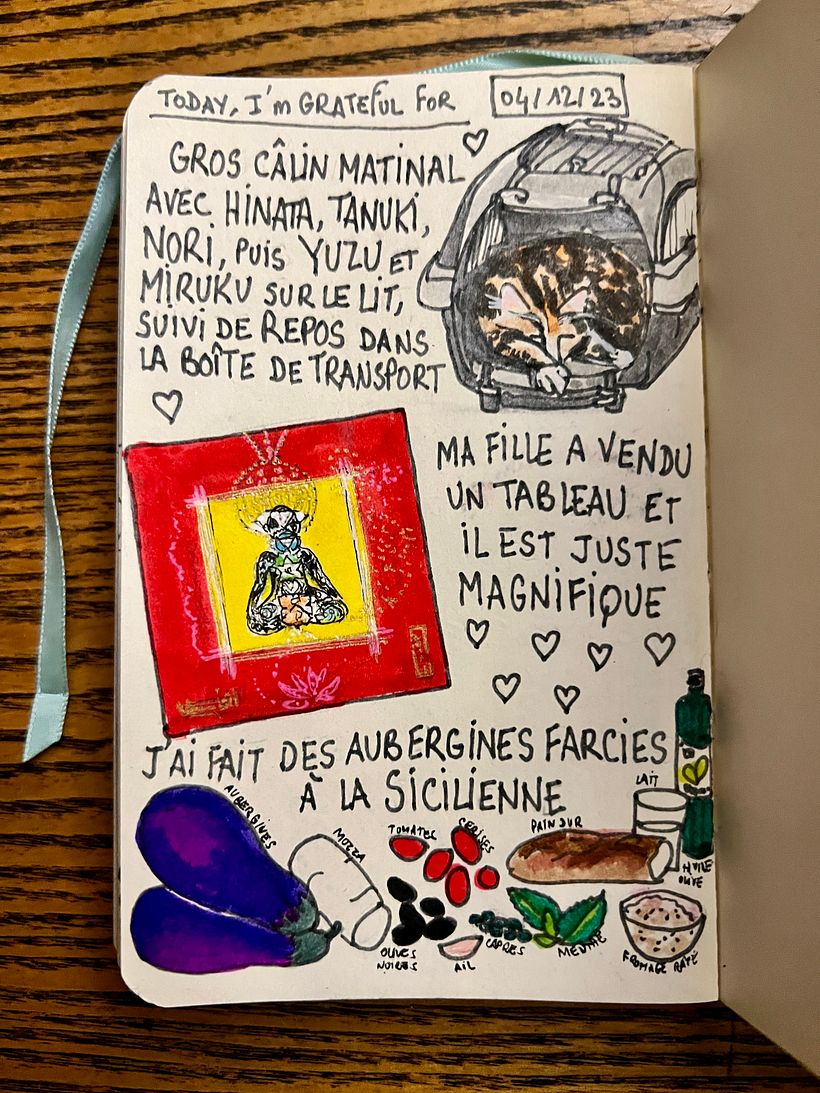 TODAY, I'm GRATEFUL FOR
04/12/23
GROS CÂLIN MATINAL
AVEC HINATA, TANUKI,
NORI, PUIS YUZU ET
MIRUKU SUR LE LIT,
SUIVI DE REPOS DANS
LA BOÎTE DE TRANSPORT
MA FILLE A VENDU
UN TABLEAU ET
IL EST JUSTE
MAGNIFIQUE
J'AI FAIT DES AUBERGINES FARCIES
À LA SICILIENNE
AUBERGINES
MOZZA
TOMATES
CERISES
PAIN DUR
LAIT
HUILE
OLIVE
OLIVES
NOIRES
AIL
CAPRES
MENTHE
FROMAGE RAPÉ